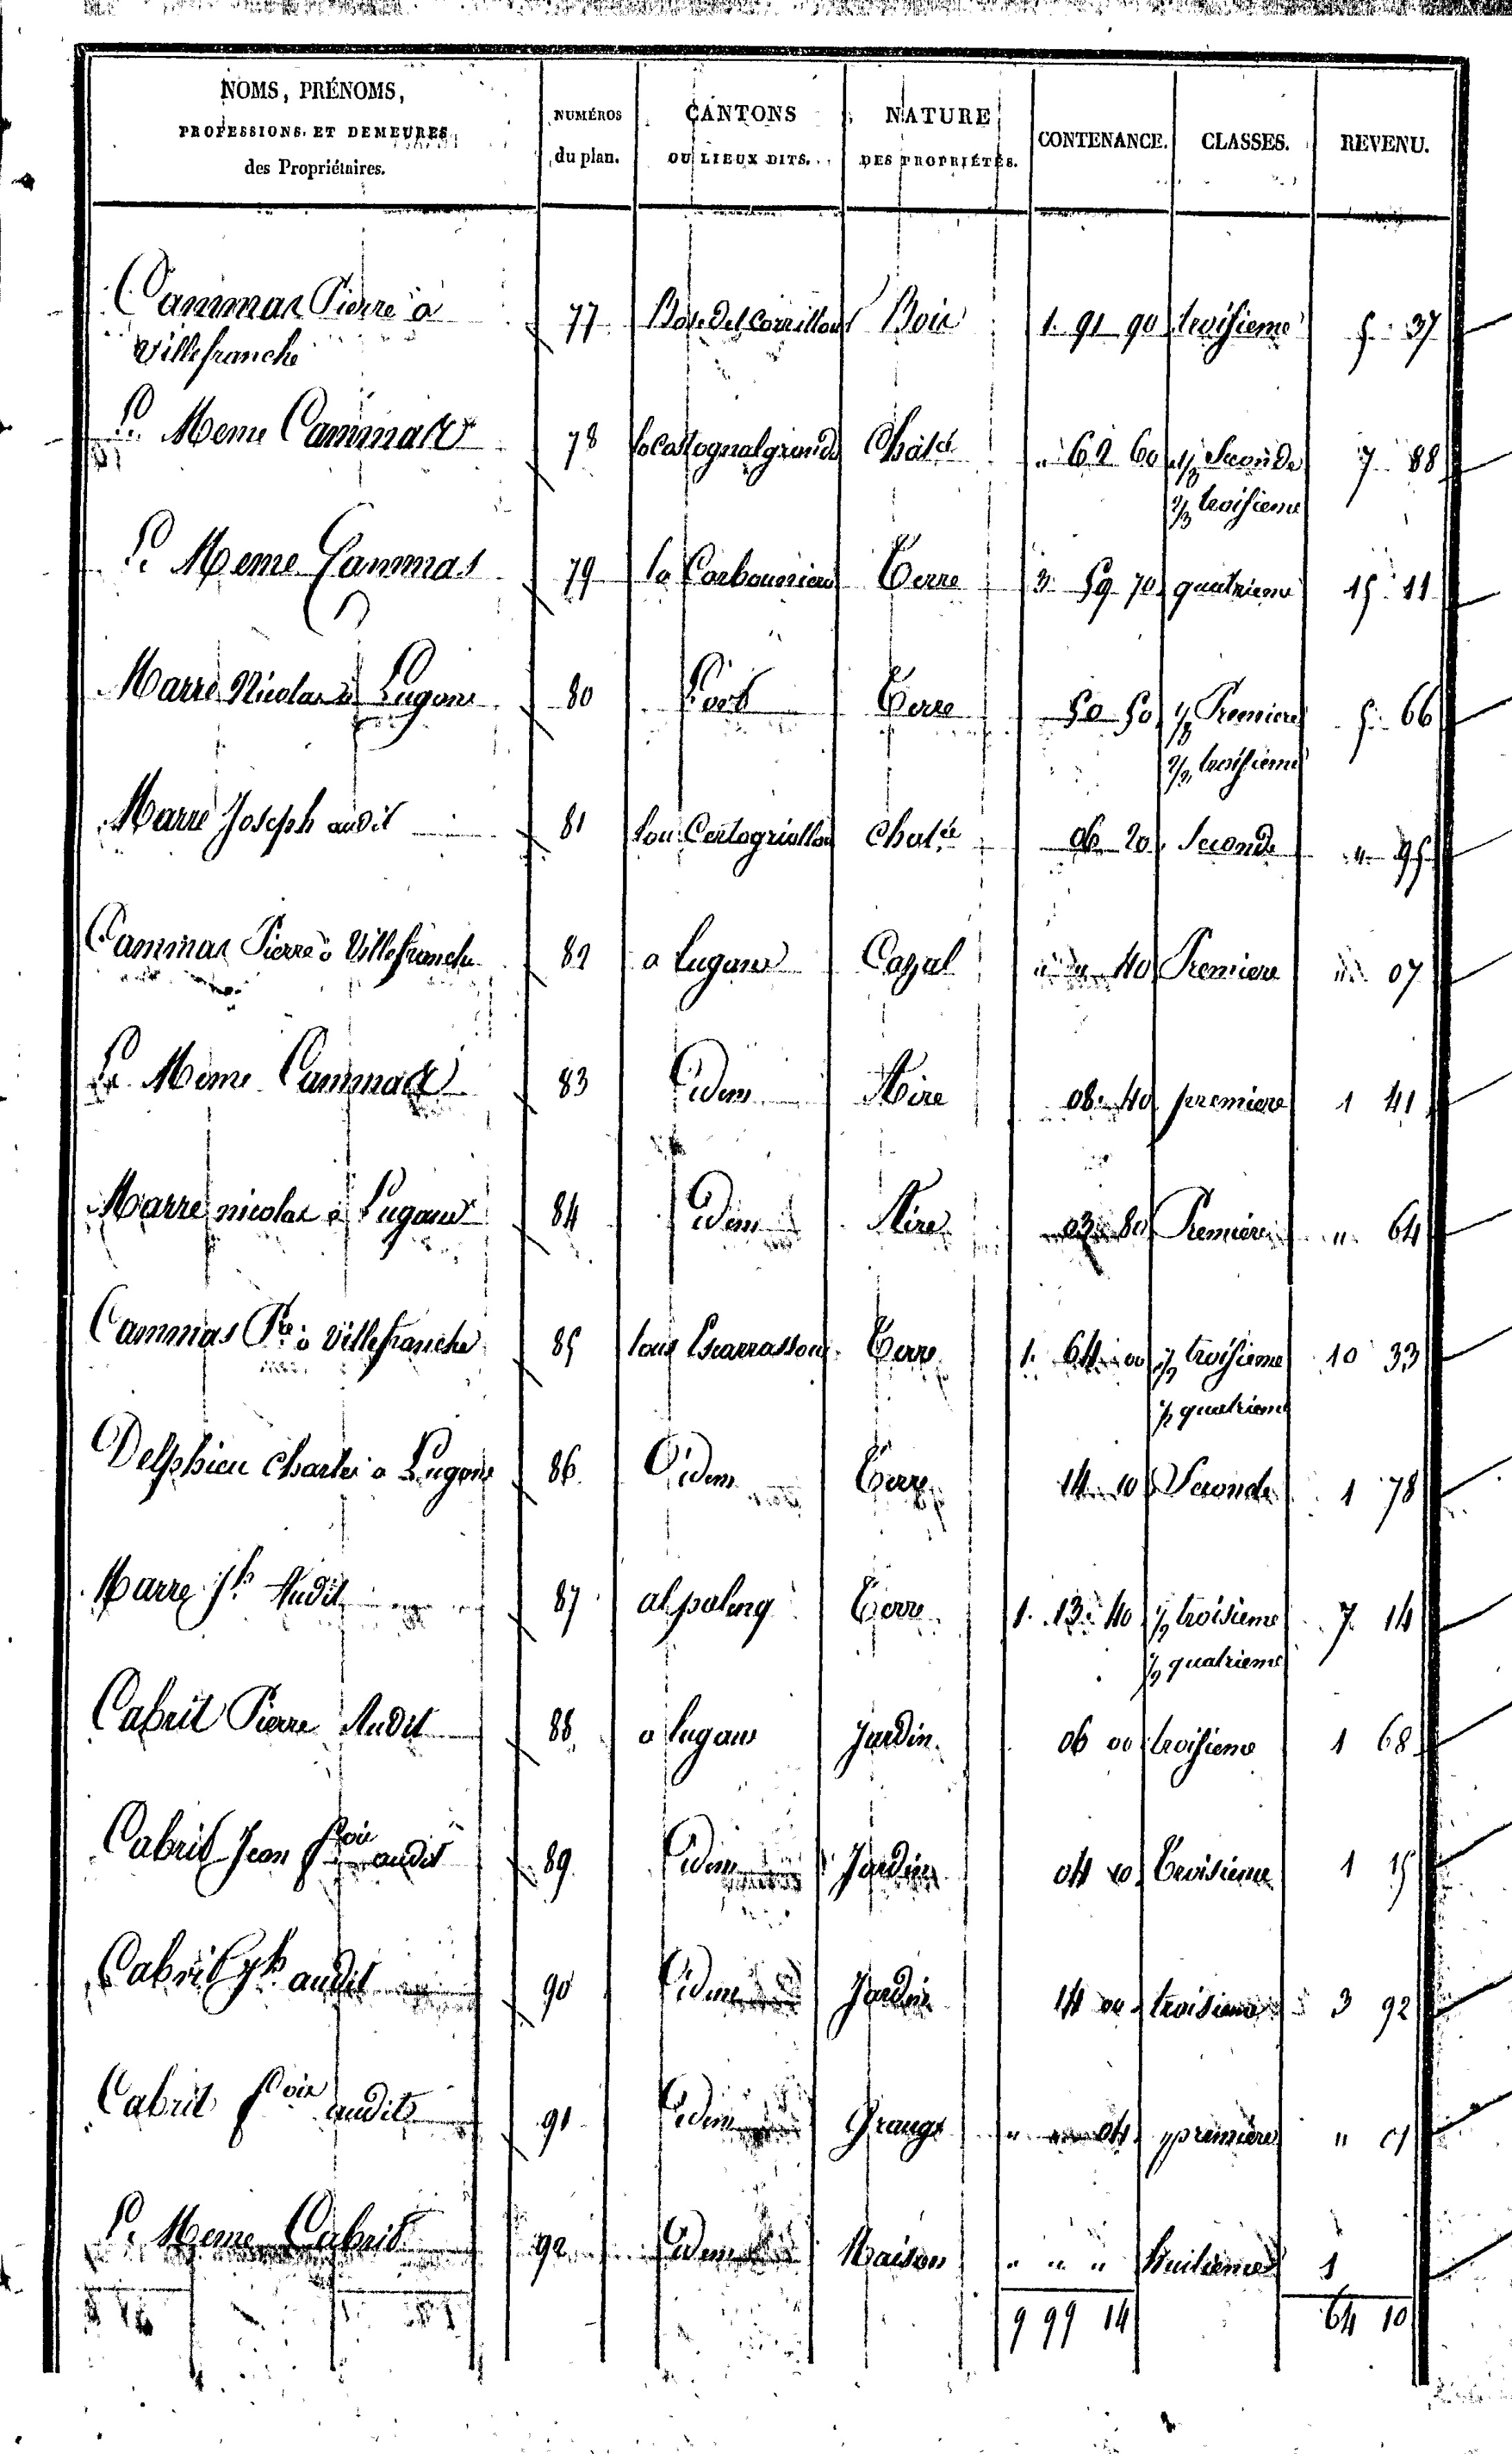 NOMS, PRÉNOMS,
PROFESSIONS ET DEMEURES
des Propriétaires.
NUMÉROS
du plan.
CANTONS
OU LIEUX DITS.
NATURE
DES PROPRIÉTÉS.
CONTENANCE.
CLASSES.
REVENU.
Cammas Pierre à 77 Bois 1. 91 90 troisieme 5. 37
Villefranche
Le Meme Cammas 78 Chatée " 62 60 1/3 Seconde 7 88
2/3 troisieme
Le Meme Cammas 79 Terre 3. 59 70 quatrieme 15 11
Marre Nicolas à Lugans 80 Terre 50 50 1/3 Premiere 5. 66
2/3 troisieme
Marre Joseph audit 81 Chatée 06 20 Seconde " 95
Cammas Pierre à Villefranche 82 a Lugans Cazal " " 40 Premiere " 07
Le Meme Cammas 83 idem Aire 08. 40 premiere 1 41
Marre nicolas à Lugans 84 idem Aire 03 80 Premiere " 64
Cammas Pre à Villefranche 85 lous Escarrassous Terre 1. 64 00 1/2 troisieme 10 33
1/2 quatrieme
Delphieu Charles a Lugans 86 idem Terre 14 10 Seconde 1 78
Marre Jh Audit 87 al paleng Terre 1. 13. 40 1/2 troisieme 7. 14
1/2 quatrieme
Cabrit Pierre Audit 88 a lugans Jardin 06 00 troisieme 1 68
Cabrit Jean fcois audit 89 idem Jardin 04 10 troisieme 1 15
Cabrit Jh audit 90 idem Jardin 14 00 troisieme 3 92
Cabrit fcois audit 91 idem Grange " " 04 premiere " 01
Le Meme Cabrit 92 idem Maison " " " huitieme 1
9 99 14 64 10